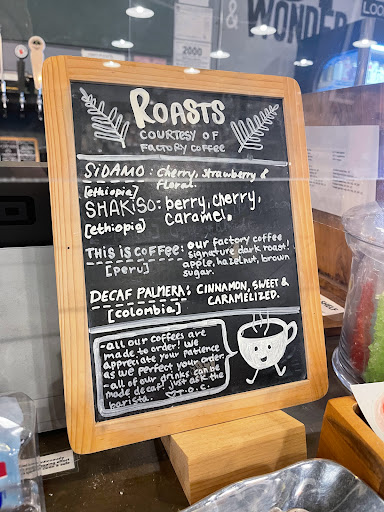 & WONDER
LOO
2000
ROASTS
COURTESY OF
FACTORY COFFEE
SIDAMO: cherry, strawberry &
[ethiopia] floral.
SHAKISO: berry, cherry,
[ethiopia] caramel.
THIS IS COFFEE: our factory coffee
signature dark roast!
[peru] apple, hazelnut, brown
sugar.
DECAF PALMERA: CINNAMON, SWEET &
[colombia] CARAMELIZED.
-all our coffees are
made to order! we
appreciate your patience
as we perfect your order
-all of our drinks can be
made decaf! just ask the
barista. T.O.C.